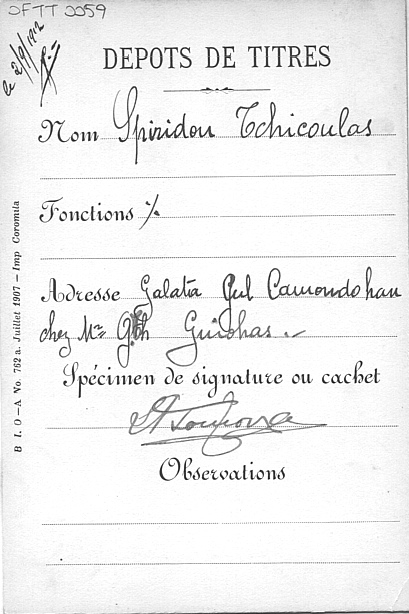 OFTT 0059
le 2/9/1912
DEPOTS DE TITRES
Nom Spiridon Tchicoulas
Fonctions %
Adresse Galata Gul Camondo han
chez Mr
Spécimen de signature ou cachet
Observations
B I. O—A No. 762 a. Juillet 1907 — Imp Coromila